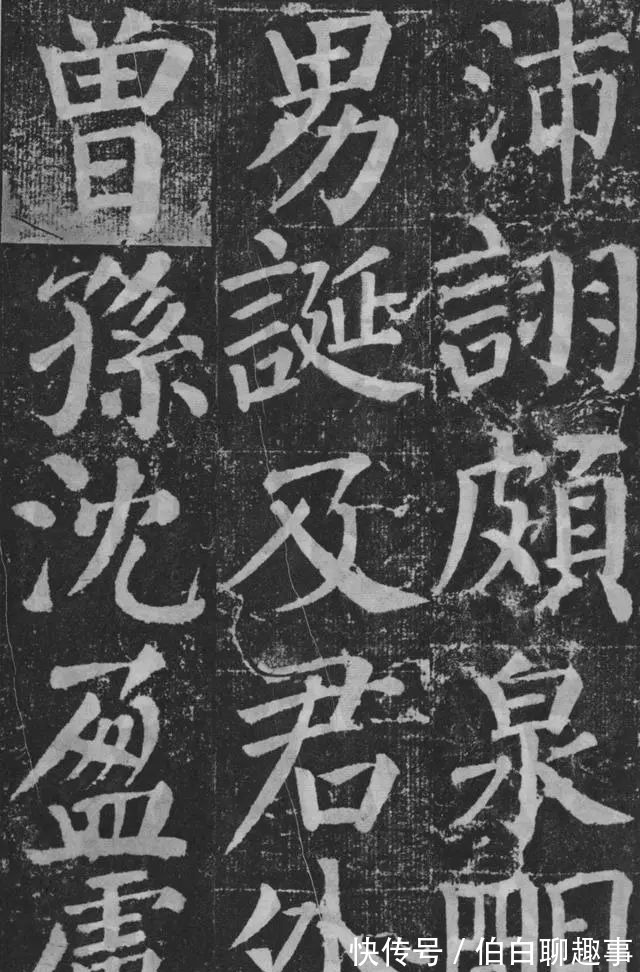 沛詡頗泉明
男誕及君外
曾孫沈盈盧
快传号 / 伯白聊趣事